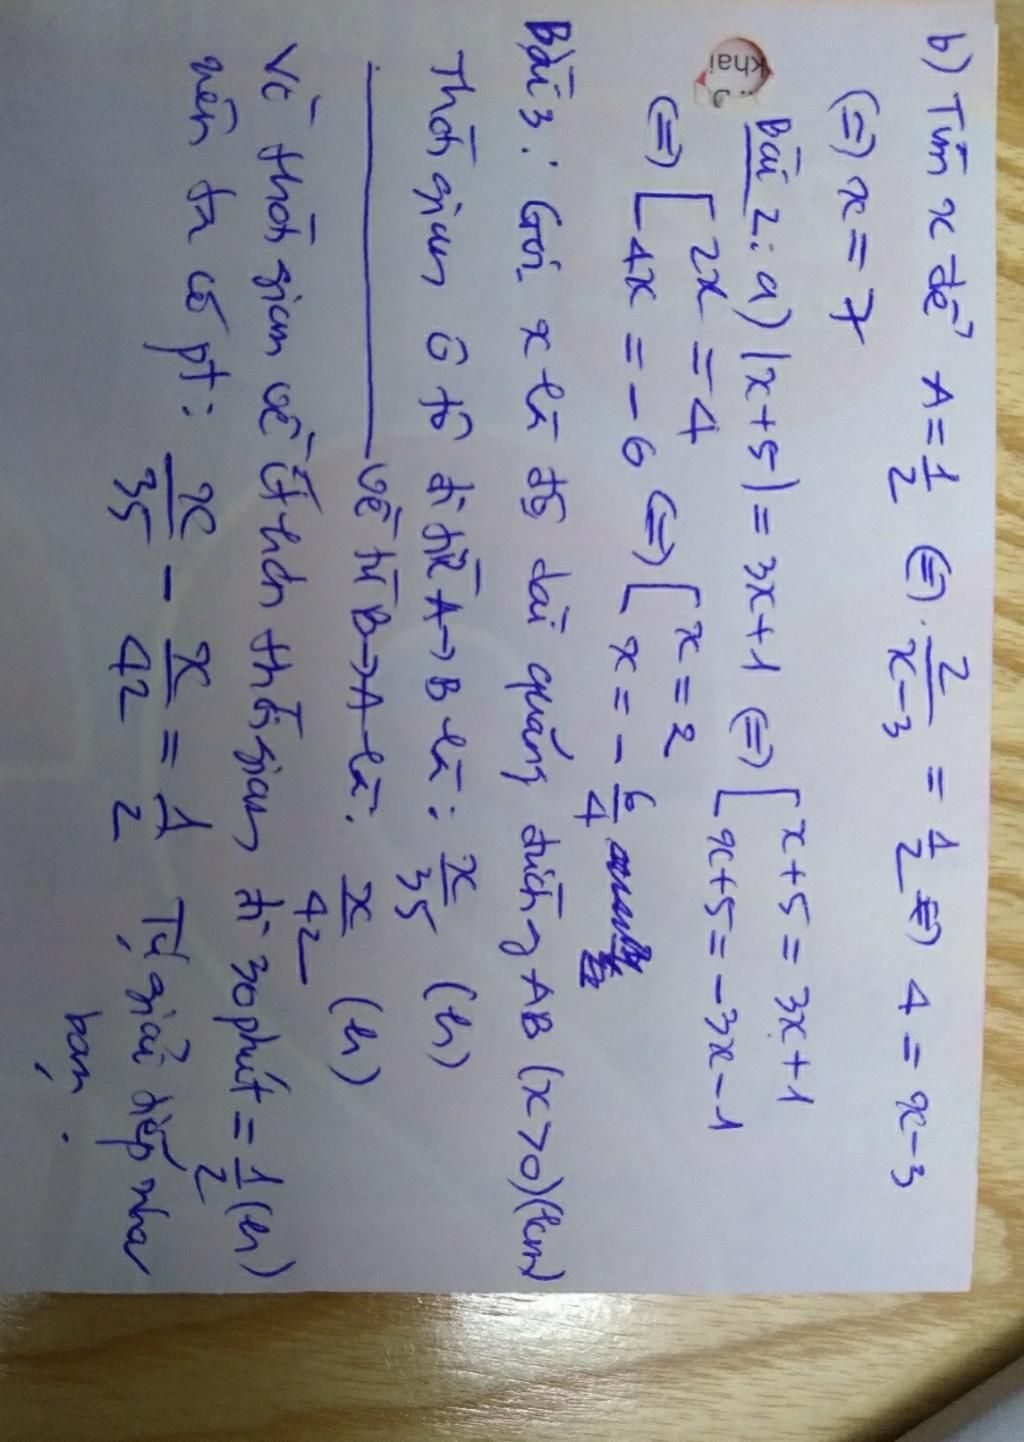 b) Tìm x để A = 1/2 (=) 2/x-3 = 1/2 (=) 4 = x-3
(=) x = 7
khai
Bài 2: a) |x+5| = 3x+1 (=) [ x+5 = 3x+1
x+5 = -3x-1
(=) [ 2x = 4
4x = -6 (=) [ x = 2
x = -6/4
Bài 3: Gọi x là độ dài quãng đường AB (x>0)(km)
Thời gian ô tô đi từ A→B là: x/35 (h)
về từ B→A là: x/42 (h)
Vì thời gian về ít hơn thời gian đi 30 phút = 1/2 (h)
nên ta có pt: x/35 - x/42 = 1/2 Tự giải tiếp nha
bạn.